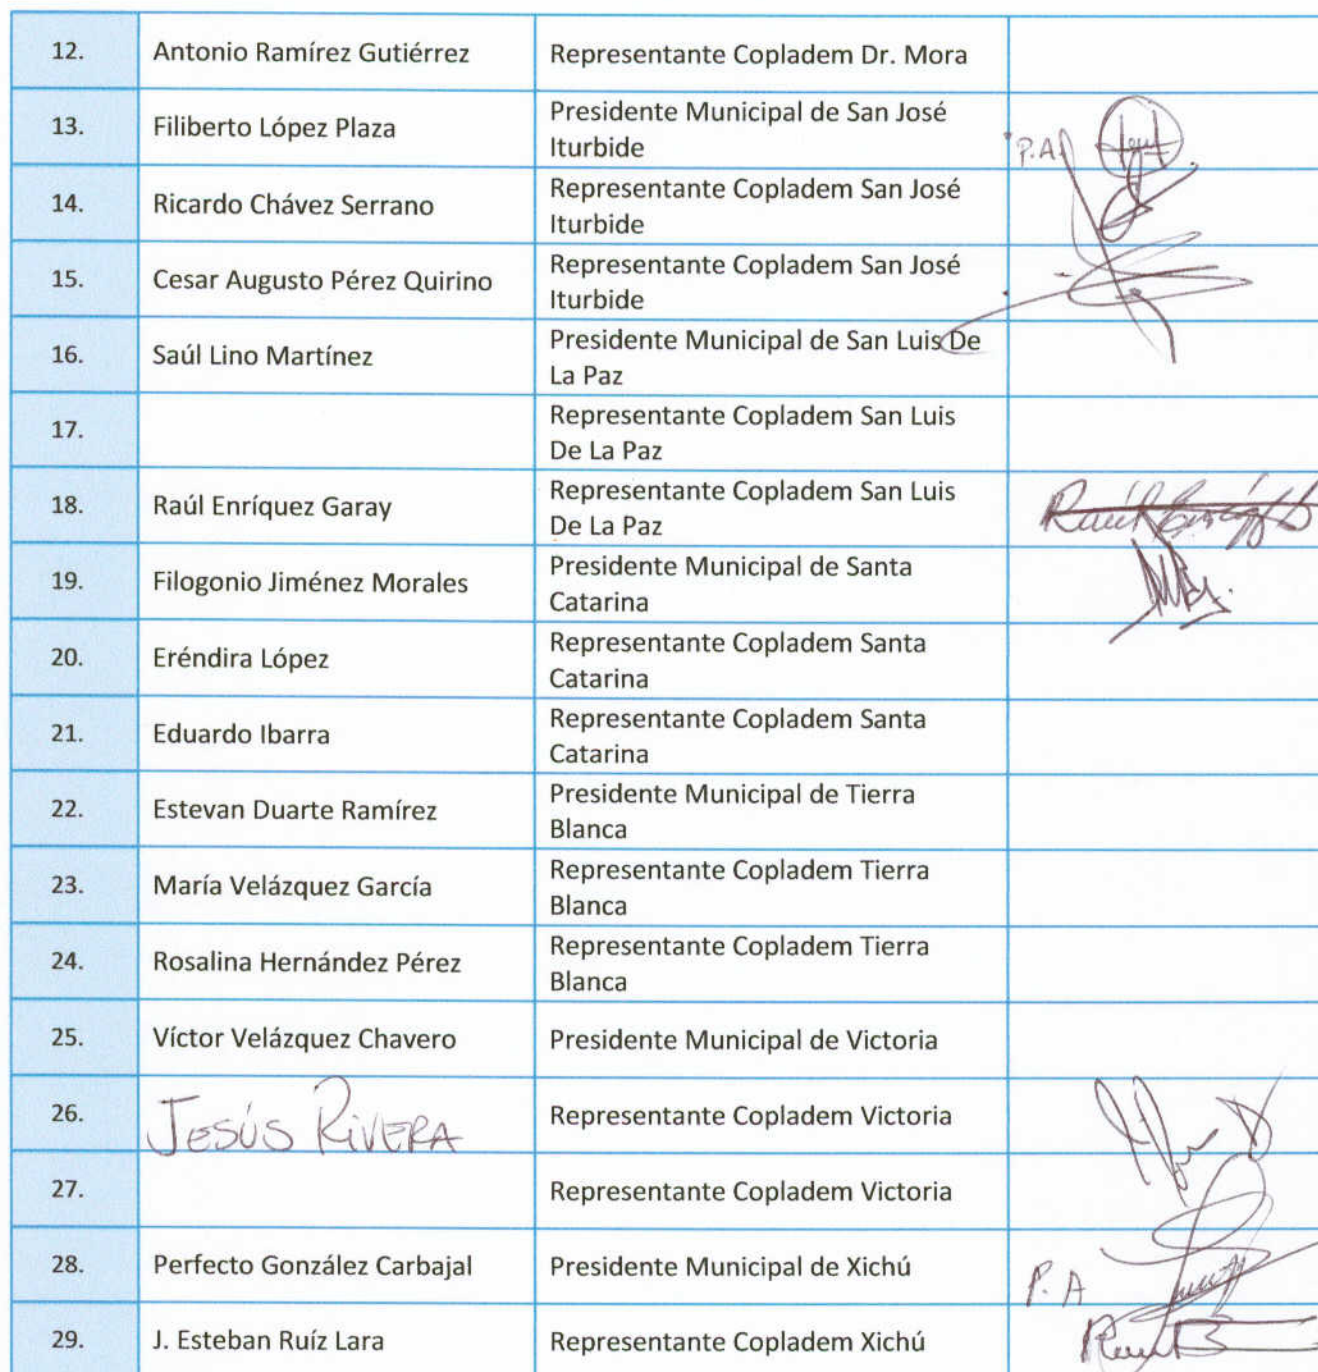 12. Antonio Ramírez Gutiérrez Representante Copladem Dr. Mora
13. Filiberto López Plaza Presidente Municipal de San José
Iturbide
P.A.
14. Ricardo Chávez Serrano Representante Copladem San José
Iturbide
15. Cesar Augusto Pérez Quirino Representante Copladem San José
Iturbide
16. Saúl Lino Martínez Presidente Municipal de San Luis De
La Paz
17. Representante Copladem San Luis
De La Paz
18. Raúl Enríquez Garay Representante Copladem San Luis
De La Paz
Raúl
19. Filogonio Jiménez Morales Presidente Municipal de Santa
Catarina
20. Eréndira López Representante Copladem Santa
Catarina
21. Eduardo Ibarra Representante Copladem Santa
Catarina
22. Estevan Duarte Ramírez Presidente Municipal de Tierra
Blanca
23. María Velázquez García Representante Copladem Tierra
Blanca
24. Rosalina Hernández Pérez Representante Copladem Tierra
Blanca
25. Víctor Velázquez Chavero Presidente Municipal de Victoria
26. JESÚS RIVERA Representante Copladem Victoria
27. Representante Copladem Victoria
28. Perfecto González Carbajal Presidente Municipal de Xichú P. A
29. J. Esteban Ruíz Lara Representante Copladem Xichú